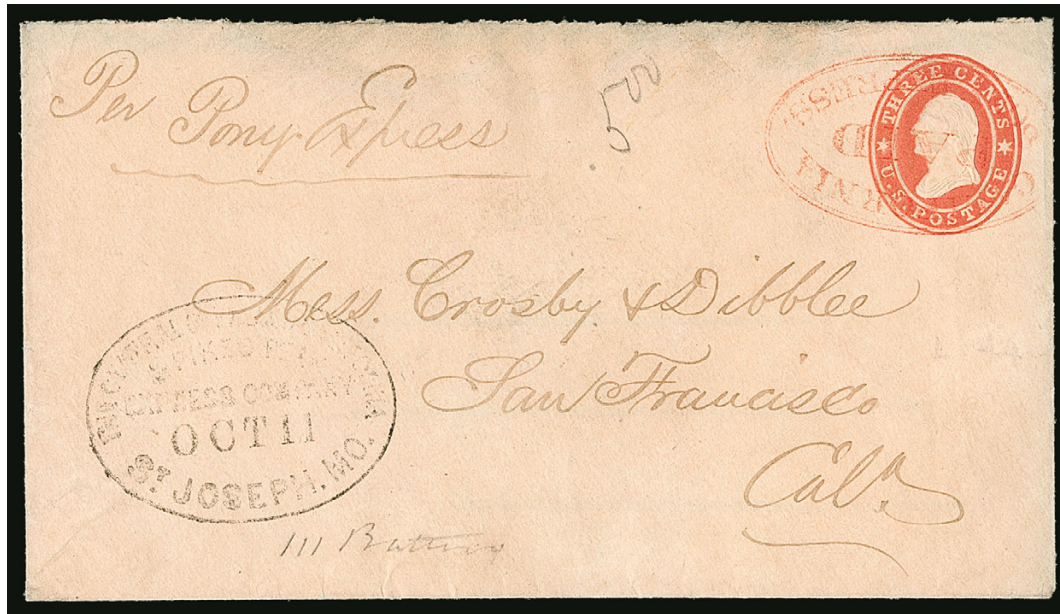 Per Pony Express
500
THREE CENTS
U.S. POSTAGE
Mess. Crosby & Dibblee
San Francisco
Cala.
THE CENTRAL OVERLAND CALIFORNIA
& PIKES PEAK
EXPRESS COMPANY
OCT 11
ST JOSEPH. MO.
111 Battery